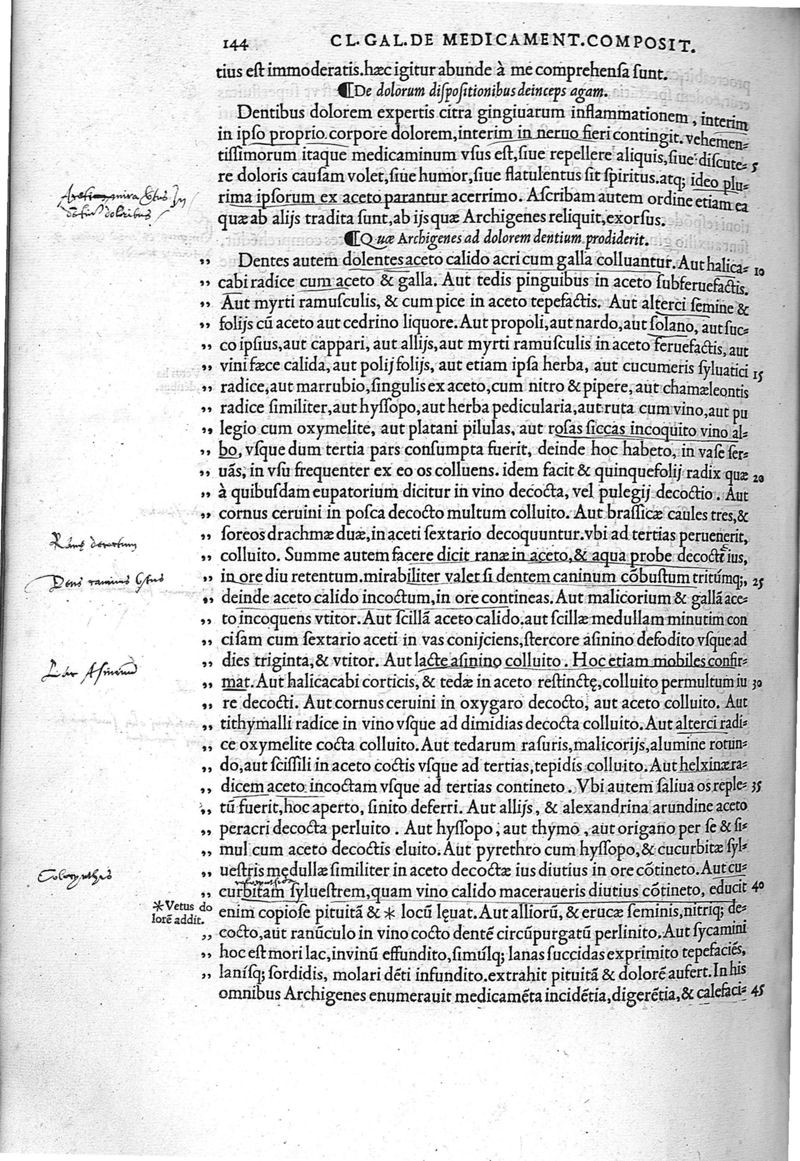 144 CL. GAL. DE MEDICAMENT. COMPOSIT.
tius est immoderatis. hæc igitur abunde à me comprehensa sunt.
¶De dolorum dispositionibus deinceps agam.
Dentibus dolorem expertis citra gingiuarum inflammationem, interim
in ipso proprio corpore dolorem, interim in neruo fieri contingit. vehemen-
tissimorum itaque medicaminum vsus est, siue repellere aliquis, siue discute- 5
re doloris causam volet, siue humor, siue flatulentus sit spiritus. atq; ideo plu-
rima ipsorum ex aceto parantur acerrimo. Ascribam autem ordine etiam ea
quæ ab alijs tradita sunt, ab ijs quæ Archigenes reliquit, exorsus.
¶Quæ Archigenes ad dolorem dentium prodiderit.
,, Dentes autem dolentes aceto calido acri cum galla colluantur. Aut halica- 10
,, cabi radice cum aceto & galla. Aut tedis pinguibus in aceto subferuefactis.
,, Aut myrti ramusculis, & cum pice in aceto tepefactis. Aut alterci semine &
,, folijs cū aceto aut cedrino liquore. Aut propoli, aut nardo, aut solano, aut suc-
,, co ipsius, aut cappari, aut allijs, aut myrti ramusculis in aceto feruefactis, aut
,, vini fæce calida, aut polij folijs, aut etiam ipsa herba, aut cucumeris syluatici 15
,, radice, aut marrubio, singulis ex aceto, cum nitro & pipere, aut chamæleontis
,, radice similiter, aut hyssopo, aut herba pedicularia, aut ruta cum vino, aut pu
,, legio cum oxymelite, aut platani pilulas, aut rosas siccas incoquito vino al-
,, bo, vsque dum tertia pars consumpta fuerit, deinde hoc habeto, in vase ser-
,, uās, in vsu frequenter ex eo os colluens. idem facit & quinquefolij radix quæ 20
,, à quibusdam eupatorium dicitur in vino decocta, vel pulegij decoctio. Aut
,, cornus ceruini in posca decocto multum colluito. Aut brassicæ caules tres, &
,, soreos drachmæ duæ, in aceti sextario decoquuntur. vbi ad tertias peruenerit,
,, colluito. Summe autem facere dicit ranæ in aceto, & aqua probe decoctę ius,
,, in ore diu retentum. mirabiliter valet si dentem caninum cōbustum tritúmq;, 25
,, deinde aceto calido incoctum, in ore contineas. Aut malicorium & gallā ace-
,, to incoquens vtitor. Aut scillā aceto calido. aut scillæ medullam minutim con
,, cisam cum sextario aceti in vas conijciens, stercore asinino defodito vsque ad
,, dies triginta, & vtitor. Aut lacte asinino colluito. Hoc etiam mobiles confir-
,, mat. Aut halicacabi corticis, & tedæ in aceto restinctę, colluito permultum iu 30
,, re decocti. Aut cornus ceruini in oxygaro decocto, aut aceto colluito. Aut
,, tithymalli radice in vino vsque ad dimidias decocta colluito. Aut alterci radi-
,, ce oxymelite cocta colluito. Aut tedarum rasuris, malicorijs, alumine rotun-
,, do, aut scissili in aceto coctis vsque ad tertias, tepidis colluito. Aut helxinæ ra-
,, dicem aceto incoctam vsque ad tertias contineto. Vbi autem saliua os reple- 35
,, tū fuerit, hoc aperto, sinito deferri. Aut allijs, & alexandrina arundine aceto
,, peracri decocta perluito. Aut hyssopo, aut thymo, aut origano per se & si-
,, mul cum aceto decoctis eluito. Aut pyrethro cum hyssopo, & cucurbitæ syl-
,, uestris medullæ similiter in aceto decoctæ ius diutius in ore cōtineto. Aut cu-
,, curbitam syluestrem, quam vino calido maceraueris diutius cōtineto, educit 40
* Vetus do enim copiose pituitā & * locū leuat. Aut alliorū, & erucæ seminis, nitriq; de-
lorē addit.
,, cocto, aut ranūculo in vino cocto dentē circūpurgatū perlinito. Aut sycamini
,, hoc est mori lac, in vinū effundito, simúlq; lanas succidas exprimito tepefaciēs,
,, lanísq; sordidis, molari dēti infundito. extrahit pituitā & dolorē aufert. In his
omnibus Archigenes enumerauit medicamēta incidētia, digerētia, & calefaci- 45